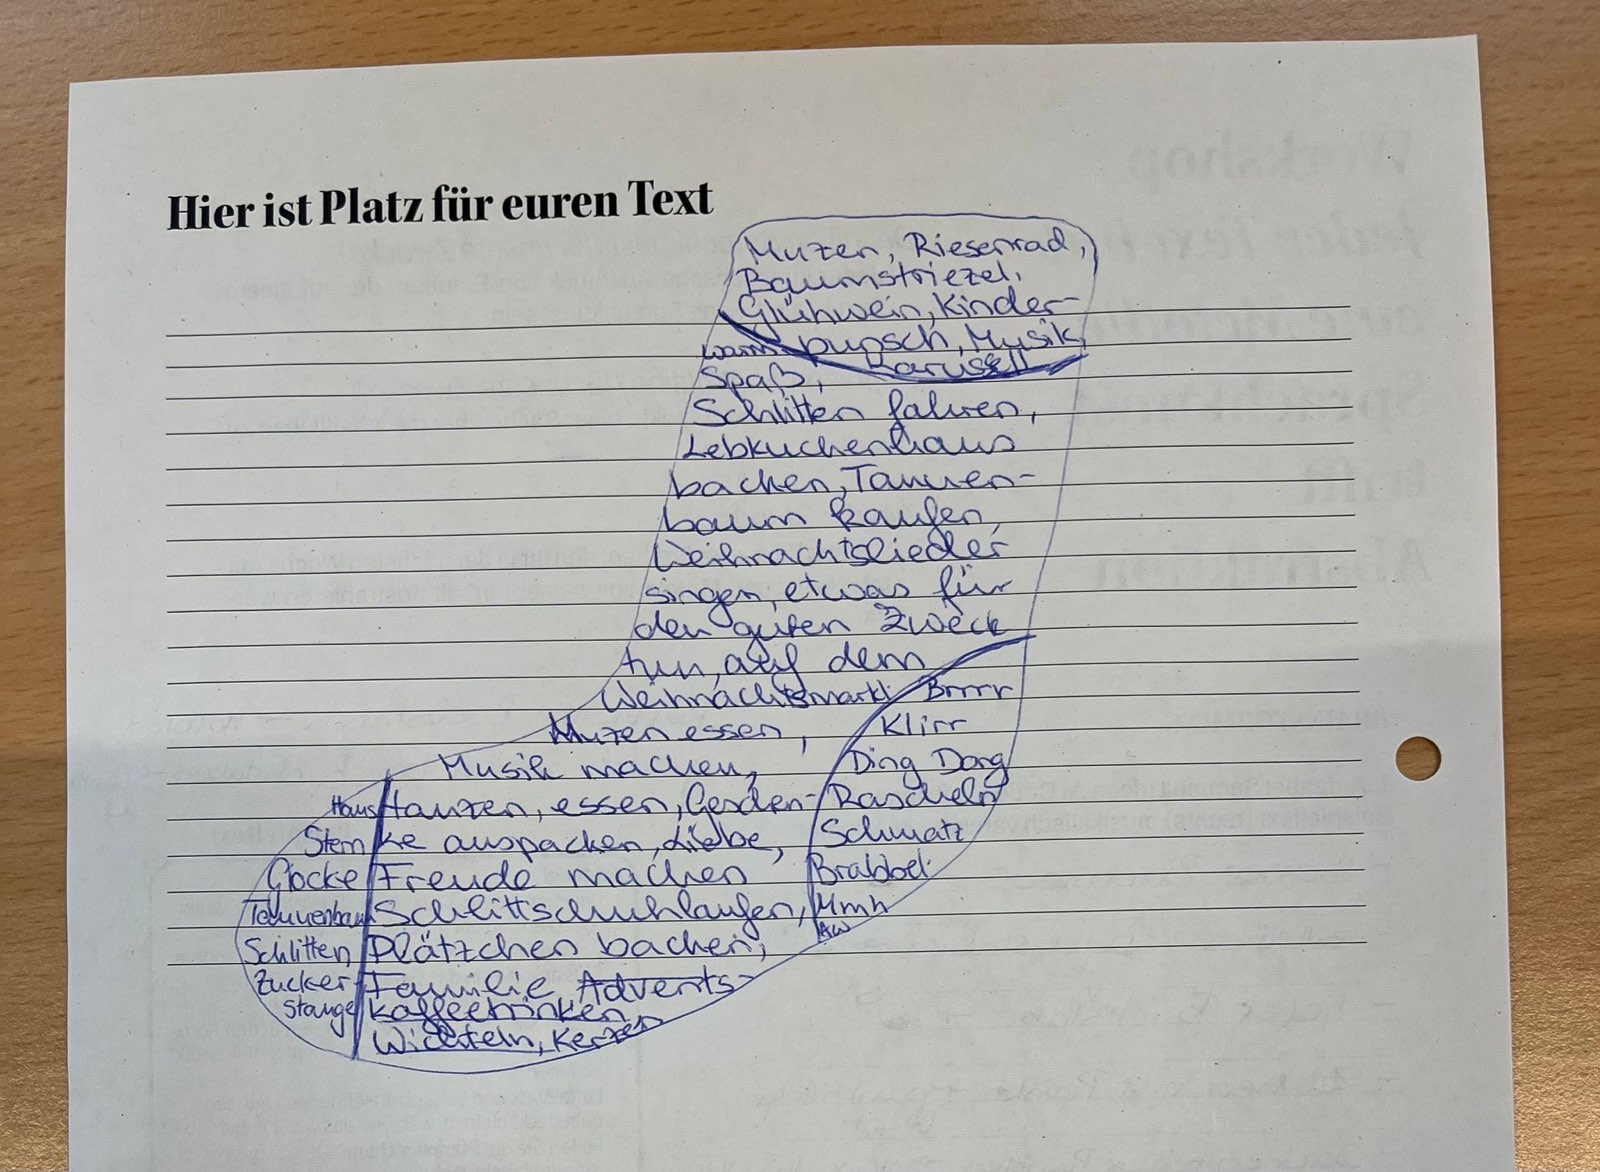 Hier ist Platz für euren Text
Muzen, Riesenrad,
Baumstriezel,
Glühwein, Kinder-
punsch, Musik
warm Karusell
Spaß,
Schlitten fahren,
Lebkuchenhaus
backen, Tannen-
baum kaufen,
Weihnachtslieder
singen, etwas für
den guten Zweck
tun, auf dem
Weihnachtsmarkt Brrrr
Muzen essen, Klirr
Musik machen, Ding Dong
Haus tanzen, essen, Geschen- Rascheln
Stern ke auspacken, Liebe, Schmatz
Glocke Freude machen Brabbel
Tannenbaum Schlittschuhlaufen, Mmh
Schlitten Plätzchen backen,
Zucker- Familie Advents-
stange kaffeetrinken
Wichteln, Kerzen